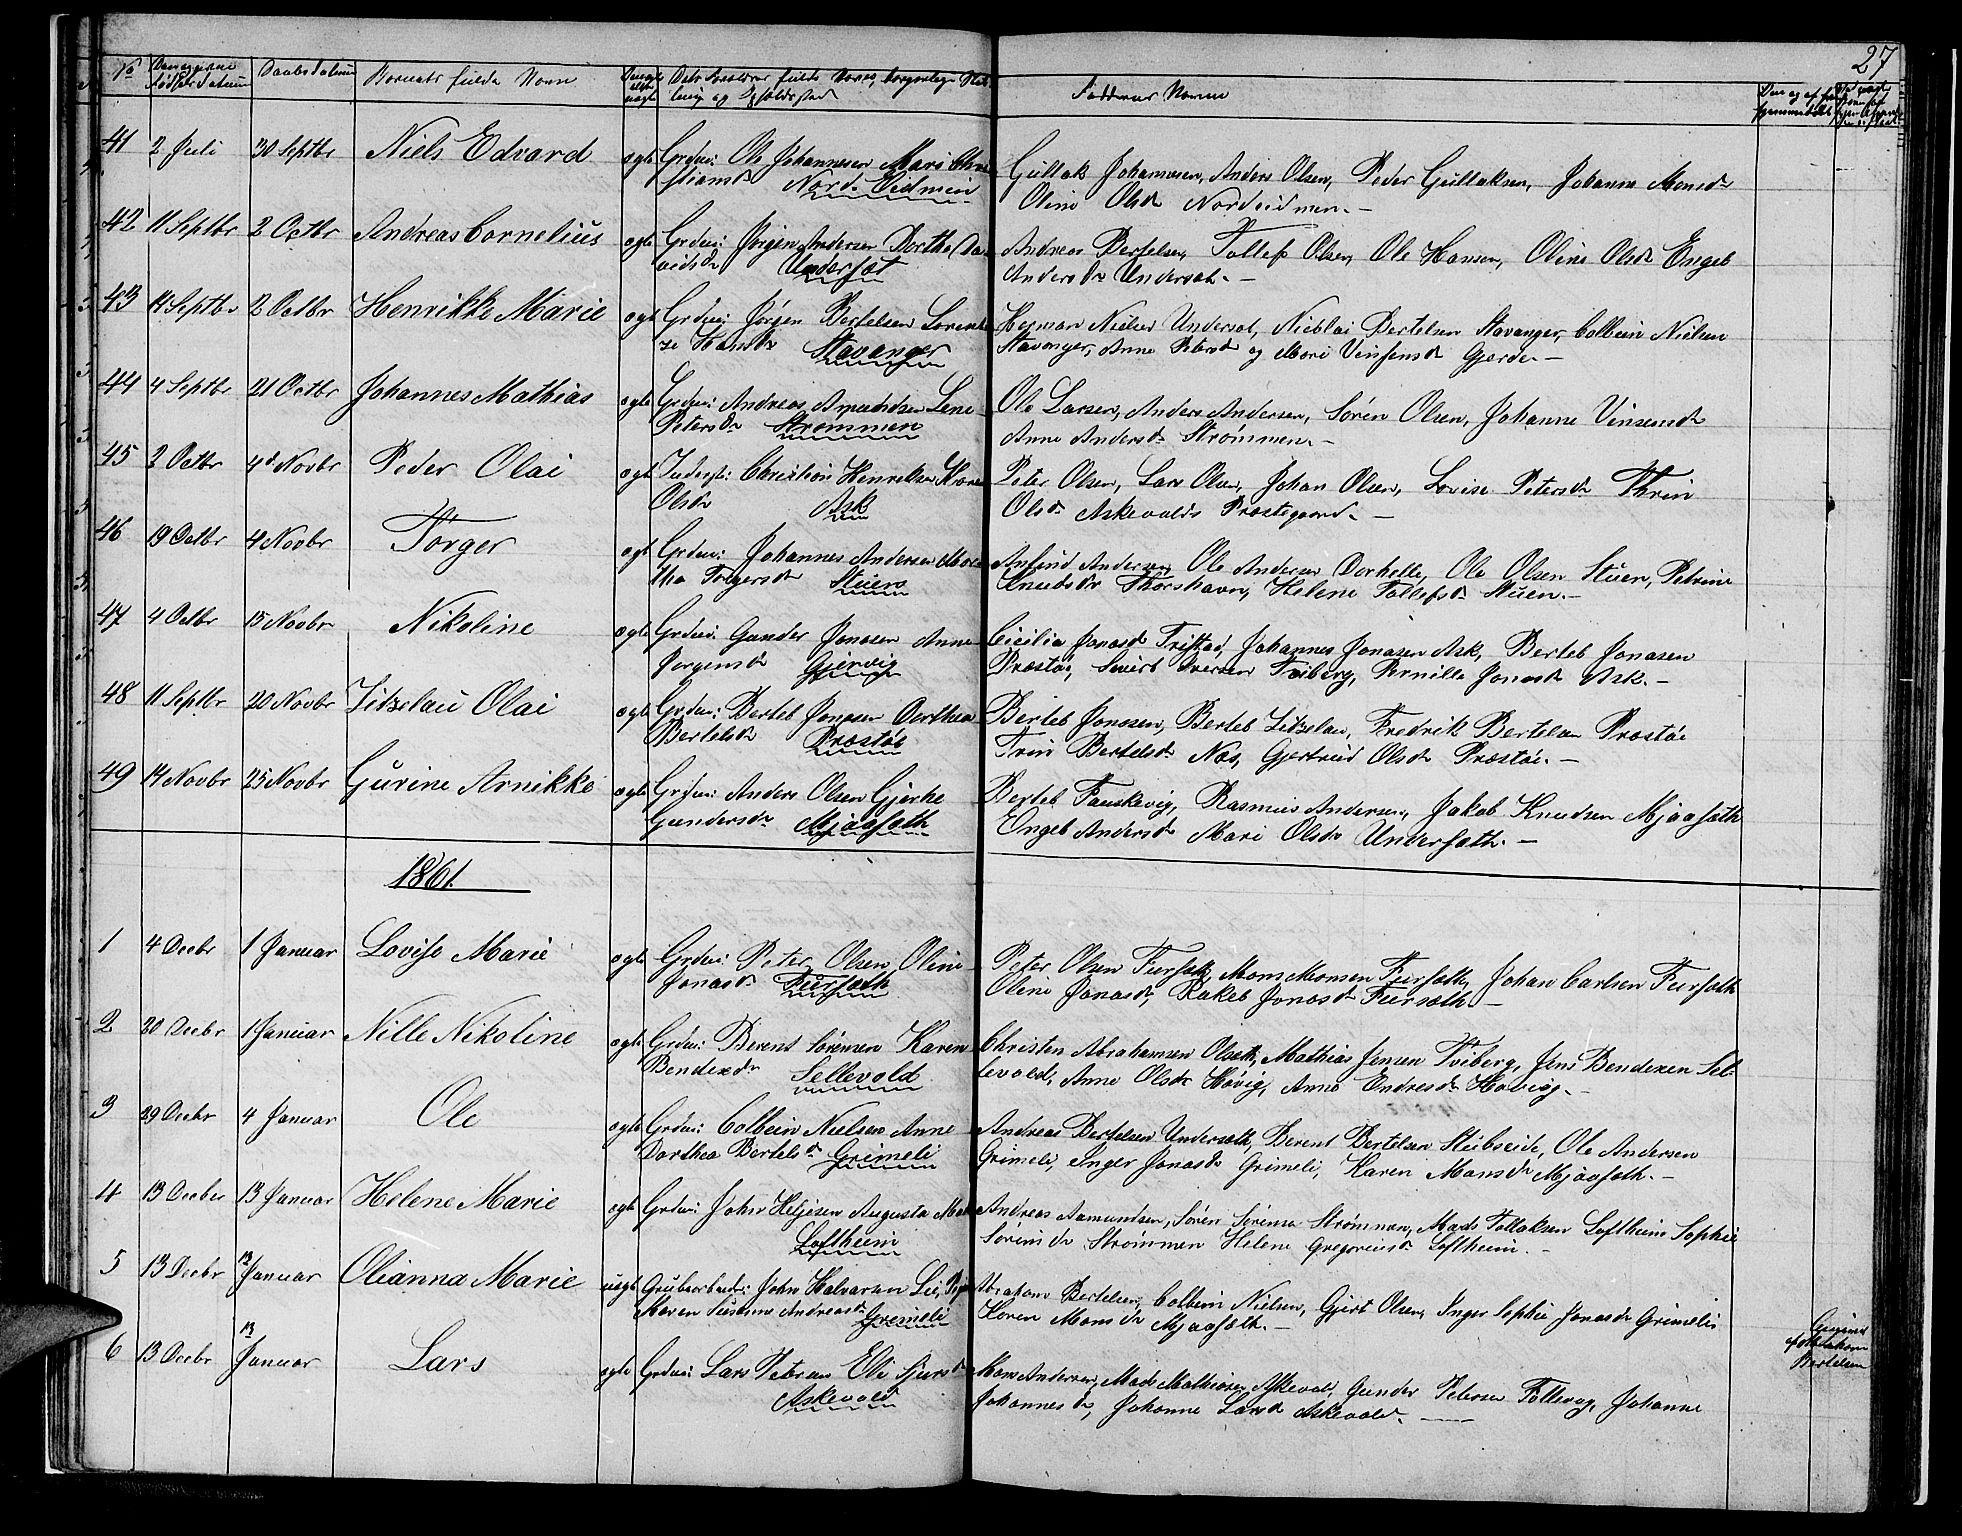 27
No
Daabsdatum
Barnets fulde Navn
Faddernes Navne
41 2 Juli 30 Septbr Niels Edvard ægte Grdm: Ole Johannesen Mari Chri
stiansdr Nord-Eidmein
Gullak Johannesen, Anders Olsen, Peder Gullaksen, Johanne Monsdr
Oline Olsdr Nordeidmen. —
42 11 Septbr 2 Octbr Andreas Cornelius ægte Grdm: Jørgen Andersen Dorthe Da
vidsdr Undersæt
Andreas Bertelsen, Tollef Olsen, Ole Hansen, Oline Olsdr Engeb
Andersdr Undersæt. —
43 14 Septbr 2 Octbr Henrikke Marie ægte Grdm: Jørgen Bertelsen Lorent
ze Hansdr Stavanger
Herman Nielsen Undersæt, Nicolai Bertelsen Stavanger, Colbein Nielsen
Stavanger, Anne Petersdr og Mari Vinsensdr Gjerde. —
44 4 Septbr 21 Octbr Johannes Mathias ægte Grdm: Andreas Amundsen Lene
Petersdr Strømmen
Ole Larsen, Anders Andersen, Søren Olsen, Johanne Vinsensdr
Anne Andersdr Strømmen. —
45 2 Octbr 4de Novbr Peder Olai ægte Inderst: Christian Henriksen Karen
Olsdr Ask
Peter Olsen, Lars Olsen, Johan Olsen, Lovise Petersdr Thrin
Olsdr Askevolds Præstegaard. —
46 19 Octbr 4 Novbr Torger ægte Grdm: Johannes Andersen Mar
tha Torgersdr Stuen
Anfind Andersen, Ole Andersen Dorhelle, Ole Olsen Stuen, Petrine
Knudsdr Thorshavn, Helene Tollefsdr Stuen. —
47 4 Octbr 15 Novbr Nikoline ægte Grdm: Gunder Jonasen Anne
Jørgensdr Gjervig
Cicilia Jonasdr Tristad, Johannes Jonasen Ask, Berteb Jonasen
Præstøe, Sivert Iversen Tviberg, Pernille Jonasdr Ask. —
48 11 Septbr 20 Novbr Litzelau Olai ægte Grdm: Berteb Jonasen Dorthea
Bertelsdr Præstøe
Berteb Jonasen, Berteb Litzelau, Fredrik Bertelsen Præstøe
Trin Bertelsdr Næs, Gjertrud Olsdr Præstøe. —
49 14 Novbr 25 Novbr Gurine Arnikke ægte Grdm: Anders Olsen Gjerke
Gundersdr Mjaasæth
Berteb Fauskevig, Rasmus Andersen, Jakob Knudsen Mjaasæth
Engeb Andersdr Mari Olsdr Undersæth. —
1861.
1 4 Decbr 1 Januar Lovise Marie ægte Grdm: Peter Olsen Oline
Jonasdr Fursæth
Peter Olsen Fursæt, Mons Monsen Fursæth, Johan Carlsen Fursæth
Olene Jonasdr, Rakel Jonasdr Fursæth —
2 20 Decbr 1 Januar Nille Nikoline ægte Grdm: Berent Sørensen Karen
Bendixdr Sellevold
Christen Abrahamsen Olset, Mathias Jensen Tviberg, Jens Bendixen Sel-
levold, Anne Olsdr Høvig, Anne Endresdr Høvig. —
3 29 Decbr 4 Januar Ole ægte Grdm: Colbein Nielsen Anne
Dorthea Bertelsdr Grimeli
Andreas Bertelsen Undersæth, Berent Bertelsen Stubseide, Ole Andersen
Grimeli, Inger Jonasdr Grimeli, Karen Monsdr Mjaasæth. —
4 13 Decbr 13 Januar Helene Marie ægte Grdm: John Heljesen Augusta
Loftheim
Andreas Aamundsen, Søren Sørensen Strømmen, Mads Tollaksen Loftheim Sophie
Sørensdr Strømmen Helene Gregoriusdr Loftheim. —
5 13 Decbr 13 Januar Olianna Marie uægte Grubearbeider: John Halvorsen Lie,
Maren Andreasdr Grimeli
Abraham Bertelsen, Colbein Nielsen, Gjert Olsen, Inger Sophie Jonasdr Grimelis
Karen Monsdr Mjaasæth. —
6 13 Decbr 13 Januar Lars ægte Grdm: Lars Petersen Eli Sjursdr
Askevold
Mons Andersen, Mads Mathiasen Askevold, Gunder Petersen Follevag, Johanne
Johannesdr, Johanne Larsdr Askevold. —
Bertelsen